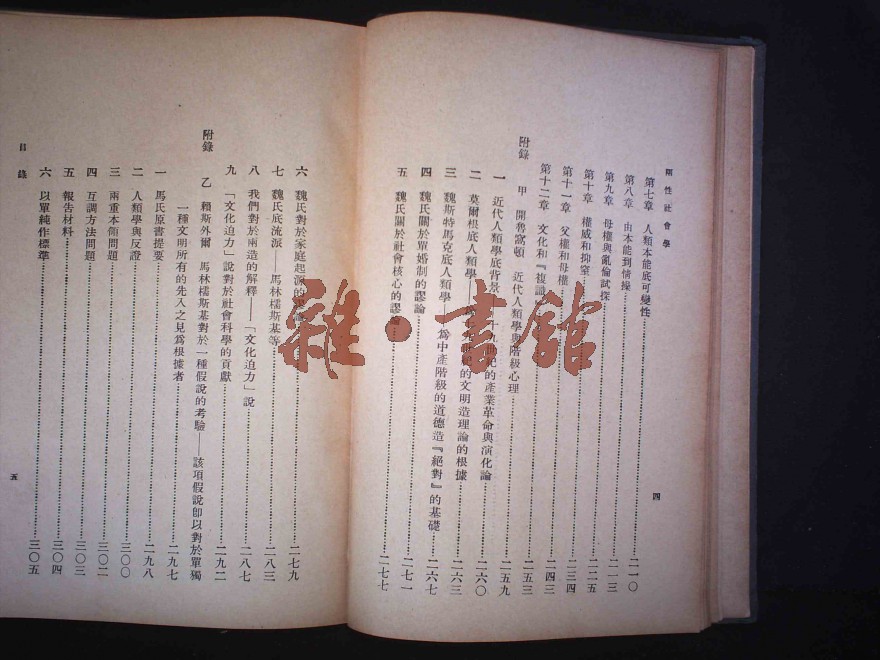 兩性社會學
第七章 人類本能底可變性 二一〇
第八章 由本能到情操 二一三
第九章 母權與亂倫試探 二二五
第十章 權威和抑窒 二三四
第十一章 父權和母權 二四三
第十二章 文化和『複識』 二五三
附錄 甲 開魯窩頓 近代人類學與階級心理 二五九
一 近代人類學底背景 十九世紀的產業革命與演化論 二六〇
二 莫爾根底人類學 世紀的文明造理論的根據 二六三
三 魏斯特馬克底人類學 爲中產階級的道德造『絕對』的基礎 二六七
四 魏氏關於單婚制的謬論 二七一
五 魏氏關於社會核心的謬論 二七七
四
六 魏氏對於家庭起源的 二七九
七 魏氏底流派——馬林檽斯基等 二八三
八 我們對於兩造的解釋——「文化迫力」說 二八七
九 「文化迫力」說對於社會科學的貢獻 二九二
附錄 乙 賴斯外爾 馬林檽斯基對於一種假說的考驗——該項假說卽以對於單獨
一種文明所有的先入之見爲根據者 二九七
一 馬氏原書提要 二九八
二 人類學與反證 三〇〇
三 兩重本領問題 三〇二
四 互調方法問題 三〇三
五 報告材料 三〇四
六 以單純作標準 三〇五
目錄
五
雜·書館